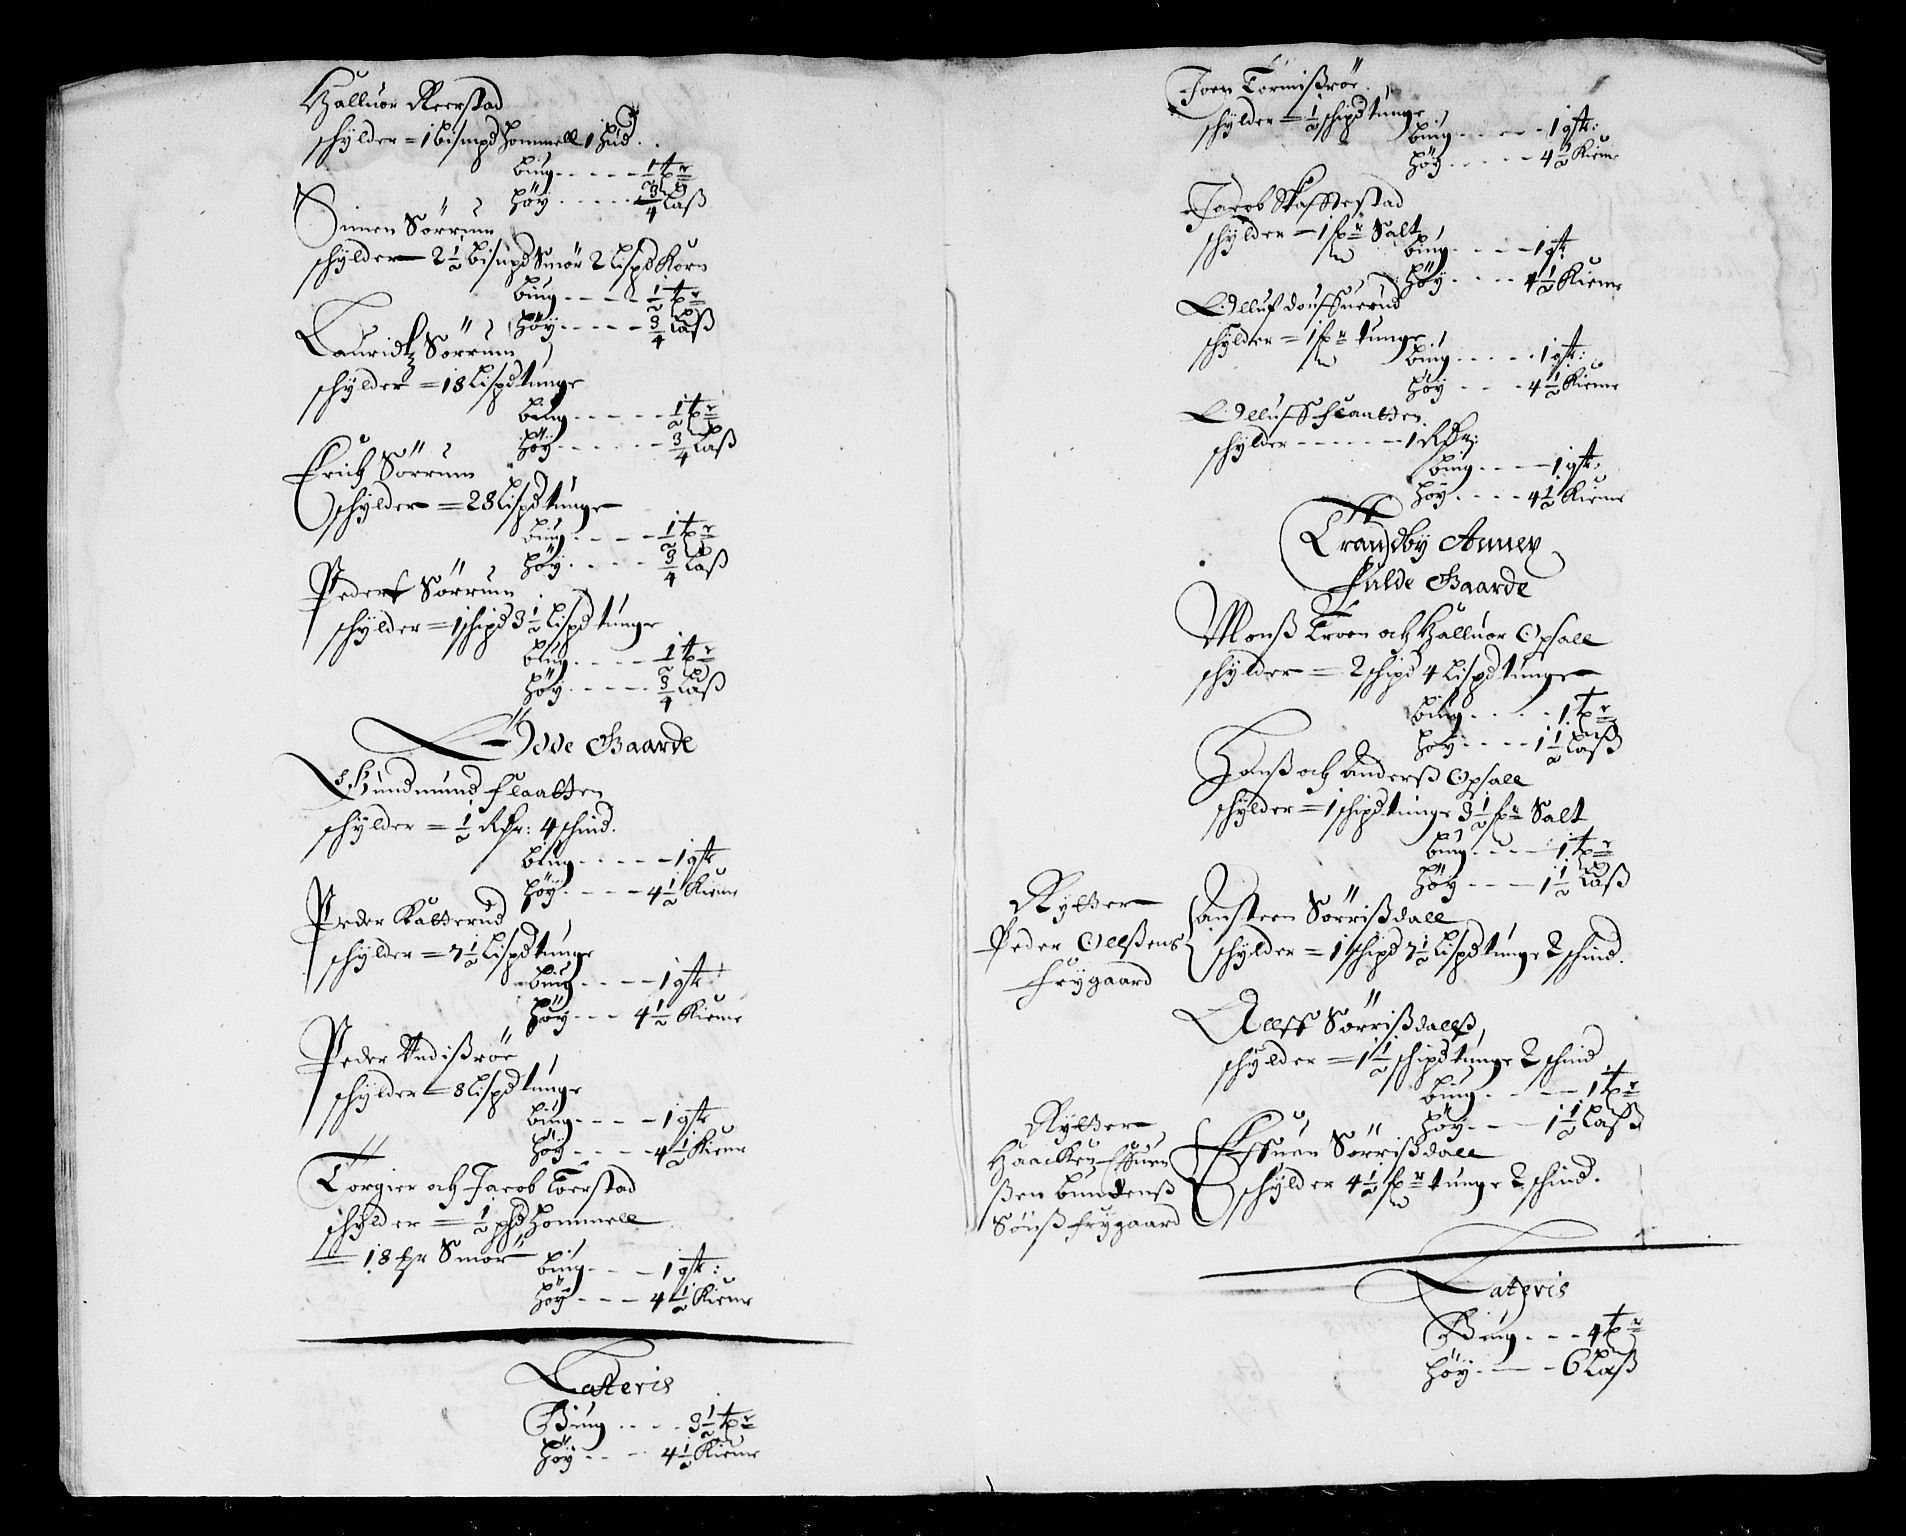 Halluor Reerstad
schylder = 1 bismpd Hommell 1 hud.
biug - - - - - 1/2 tr
höy - - - - - 3/4 Laß
Simen Sörrum
schylder - 2 1/2 bismpd Smör 2 lispd Korn
biug - - - - - 1/2 tr
höy - - - - - 3/4 Laß
Lauridtz Sörrum
schylder = 18 Lispd tunge
biug - - - - - 1/2 tr
höy - - - - - 3/4 Laß
Erich Sörrum
schylder = 28 Lispd tunge
biug - - - - 1/2 tr
höy - - - - 3/4 Laß
Peder Sörrum
schylder = 1 schipd 3 1/2 Lispd tunge
biug - - - - 1/2 tr
höy - - - - 3/4 Laß
Ödde Gaarde
Gundmund Flaatten
schylder = 1/2 Rdr: 4 schind.
biug - - - - - 1 qtr
höy - - - - 4 1/2 Kierue
Peder Katterud
schylder = 7 1/2 Lispd tunge
biug - - - - 1 qtr
höy - - - 4 1/2 Kierue
Peder Undißröe
schylder = 8 Lispd tunge
biug - - - - 1 qtr
höy - - - - 4 1/2 Kierue
Torgier och Jacob Toerstad
schylder = 1/2 pd Hommell
- 18 Smör
biug - - - 1 qtr:
höy - - - 4 1/2 Kierue
Lateris
Biug - - - - 3 1/2 tr
höy - - - - 4 1/2 Kierue
Joen Tormißröe
schylder = 1/2 schipd tunge
biug - - - - - 1 qtr:
höy - - - - - 4 1/2 Kierue
Jacob Skaffestad
schylder - 1 fr Salt
biug - - - - - 1 qtr
höy - - - - 4 1/2 Kierue
Olluf
schylder = 1 fr tunge
biug - - - - - 1 qtr:
höy - - - - 4 1/2 Kierue
Olluff Flaatten
schylder - - - - - - 1 Rdr:
biug - - - - 1 qtr:
höy - - - - 4 1/2 Kierue
Trandby Annex
Fulde Gaarde
Monß Troen och Halluor Opsall
schylder = 2 schipd 4 Lispd tunge
biug - - - - - 1 tr
höy - - - - 1 1/2 Laß
Hanß och Anderß Opsall
schylder = 1 schipd tunge 3 1/2 fr Salt
biug - - - - 1 tr
höy - - - 1 1/2 Laß
Rytter
Peder Ollßens
frygaard
Ansteen Sörrißdall
schylder = 1 schipd 7 1/2 Lispd tunge 2 schind.
Alff Sörrißdallß
schylder = 1 1/2 schipd tunge 2 schind
biug - - - - 1 tr
höy - - - 1 1/2 Laß
Rytter
Haacken Effuen
ßen bundenß
Sönß frygaard
Effuen Sörrißdall
schylder 4 1/2 fr tunge 2 schind.
Lateris
Biug - - - 4 tr
höy - - - 6 Laß